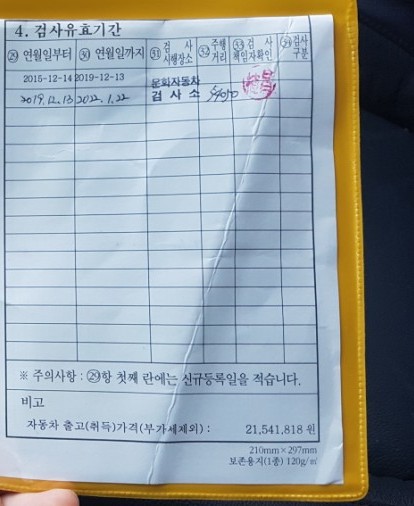 4. 검사유효기간
㉙ 연월일부터 ㉚ 연월일까지 ㉛ 검 사 시행장소 ㉜ 주행 거리 ㉝ 검 사 책임자확인 ㉞ 검사 구분
2015-12-14 2019-12-13
2019.12.13 2022.1.22 문화자동차 검 사 소
※ 주의사항 : ㉙항 첫째 란에는 신규등록일을 적습니다.
비고
자동차 출고(취득)가격(부가세제외) : 21,541,818 원
210mm×297mm
보존용지(1종) 120g/㎡